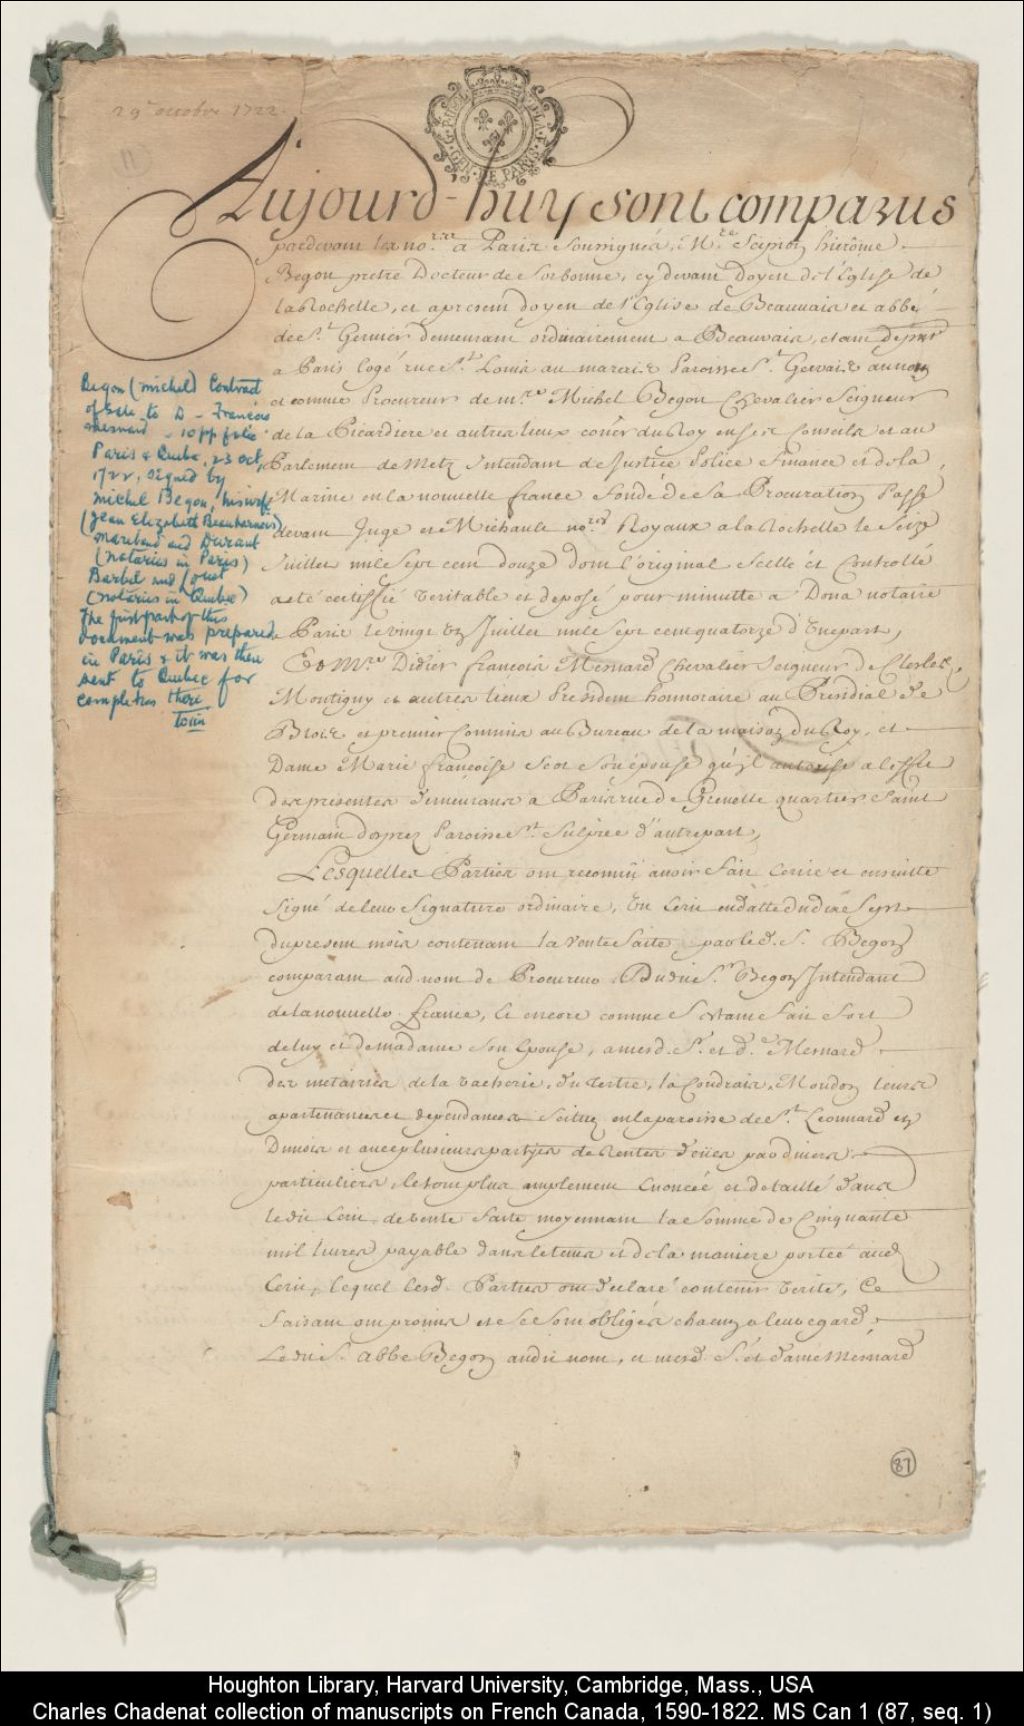 29e octobre 1722.
G. P. R. SOL
GEN. DE PARIS
11
Aujourd-huy sont comparus
pardevant les nores a Paris soussignés, Mre Scipion hierôme
Begon pretre Docteur de Sorbonne, cy devant Doyen de l'Eglise de
la Rochelle, et apresent doyen de l'Eglise de Beauvais et abbé
de St. Germer demeurant ordinairement a Beauvais, etant de pnt
a Paris logé rue St. Louis au marais Paroisse St. Gervais au nom
et comme Procureur de mre Michel Begon Chevalier Seigneur
de la Picardiere et autres lieux coner du Roy en ses Conseils et au
Parlement de Metz Intendant de Justice Police Finance et de la
Marine en la nouvelle france fondé de sa Procuration Passé
devant Juge et Michault nores Royaux a la Rochelle le Seize
Juillet mil sept cent douze dont l'original Scellé et Controllé
a eté certiffié veritable et deposé pour minutte a Dona notaire
a Paris le vingt un Juillet mil sept cent quatorze d'une part,
Et Mre Didier francois Mesnard Chevalier Seigneur de Clesles,
Montigny et autres lieux President honnoraire au Presidial de
Blois et premier Commis au Bureau de la maison du Roy, et
Dame Marie françoise Scot son épouse qu'il autorise a l'effet
des presentes demeurans a Paris rue de Grenelle quartier Saint
Germain desprez Paroisse St. Sulpice d'autre part,
Lesquelles Parties ont reconnu avoir fait ecrire et ensuitte
Signé de leur Signature ordinaire, un Ecrit en datte du dix Sept
du present mois contenant la vente faite par led. S. Begon
comparant aud. nom de Procureur Dudit Sr. Begon Intendant
de la nouvelle france, et encore comme S
de luy et de madame son Epouse, a mesd. Sr. et de. Mesnard
des metairies de la vacherie, du tertre, la Coudraie, Moudon leurs
apartenances et dependances Scituez en la paroisse de St. Leonnard en
Dunois et avec plusieurs parties de Rentes deües par divers
particuliers, le tout plus amplement Enoncée et detaillé dans
ledit Ecrit de vente faite moyennant la Somme de Cinquante
mil livres payable dans le tems et de la maniere portée aud.
Ecrit, lequel lesd. Parties ont declaré contenir verité, Ce
faisant ont promis et se sont obligés chacun a leur egard,
Ledit S. Abbé Begon audit nom, et mesd. Sr. et dame Mesnard
Begon (Michel) Contract
of Sale to D - Francois
Mesnard - 10 pp folio
Paris & Quebec, 23 oct,
1722, signed by
Michel Begon, his wife
(Jean Elizabeth Beauharnois)
Marchand and Durant
(notaries in Paris)
Barbel and Louet
(notaries in Quebec)
The first part of this
document was prepared
in Paris & it was then
sent to Quebec for
completion there
too
87
Houghton Library, Harvard University, Cambridge, Mass., USA
Charles Chadenat collection of manuscripts on French Canada, 1590-1822. MS Can 1 (87, seq. 1)